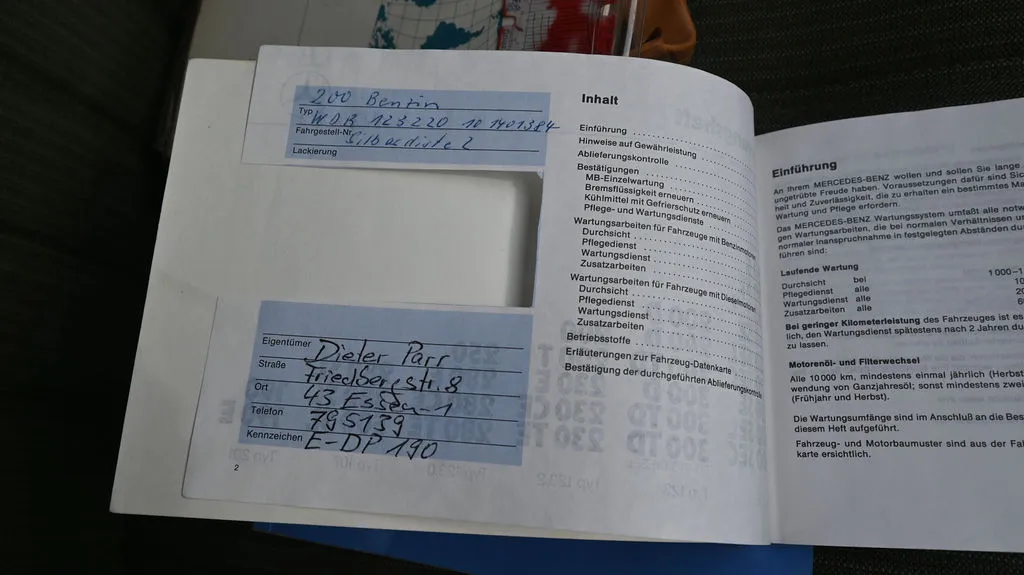 200 Benzin
Typ
WDB 123220 10 1401384
Fahrgestell-Nr.
Silberdistel
Lackierung
Eigentümer Dieter Parr
Straße Friedbergstr. 8
Ort 43 Essen-1
Telefon 795139
Kennzeichen E-DP 190
2
Inhalt
Einführung
Hinweise auf Gewährleistung
Ablieferungskontrolle
Bestätigungen
MB-Einzelwartung
Bremsflüssigkeit erneuern
Kühlmittel mit Gefrierschutz erneuern
Pflege- und Wartungsdienste
Wartungsarbeiten für Fahrzeuge mit Benzinmotoren
Durchsicht
Pflegedienst
Wartungsdienst
Zusatzarbeiten
Wartungsarbeiten für Fahrzeuge mit Dieselmotoren
Durchsicht
Pflegedienst
Wartungsdienst
Zusatzarbeiten
Betriebsstoffe
Erläuterungen zur Fahrzeug-Datenkarte
Bestätigung der durchgeführten Ablieferungskontrolle
Einführung
An Ihrem MERCEDES-BENZ wollen und sollen Sie lange
ungetrübte Freude haben. Voraussetzungen dafür sind Sich
heit und Zuverlässigkeit, die zu erhalten ein bestimmtes Ma
Wartung und Pflege erfordern.
Das MERCEDES-BENZ Wartungssystem umfaßt alle notw
gen Wartungsarbeiten, die bei normalen Verhältnissen u
normaler Inanspruchnahme in festgelegten Abständen du
führen sind:
Laufende Wartung
Durchsicht bei 1000–1
Pflegedienst alle 10
Wartungsdienst alle 20
Zusatzarbeiten alle 6
Bei geringer Kilometerleistung des Fahrzeuges ist es
lich, den Wartungsdienst spätestens nach 2 Jahren du
zu lassen.
Motorenöl- und Filterwechsel
Alle 10 000 km, mindestens einmal jährlich (Herbst
wendung von Ganzjahresöl; sonst mindestens zwei
(Frühjahr und Herbst).
Die Wartungsumfänge sind im Anschluß an die Bes
diesem Heft aufgeführt.
Fahrzeug- und Motorbaumuster sind aus der Fa
karte ersichtlich.